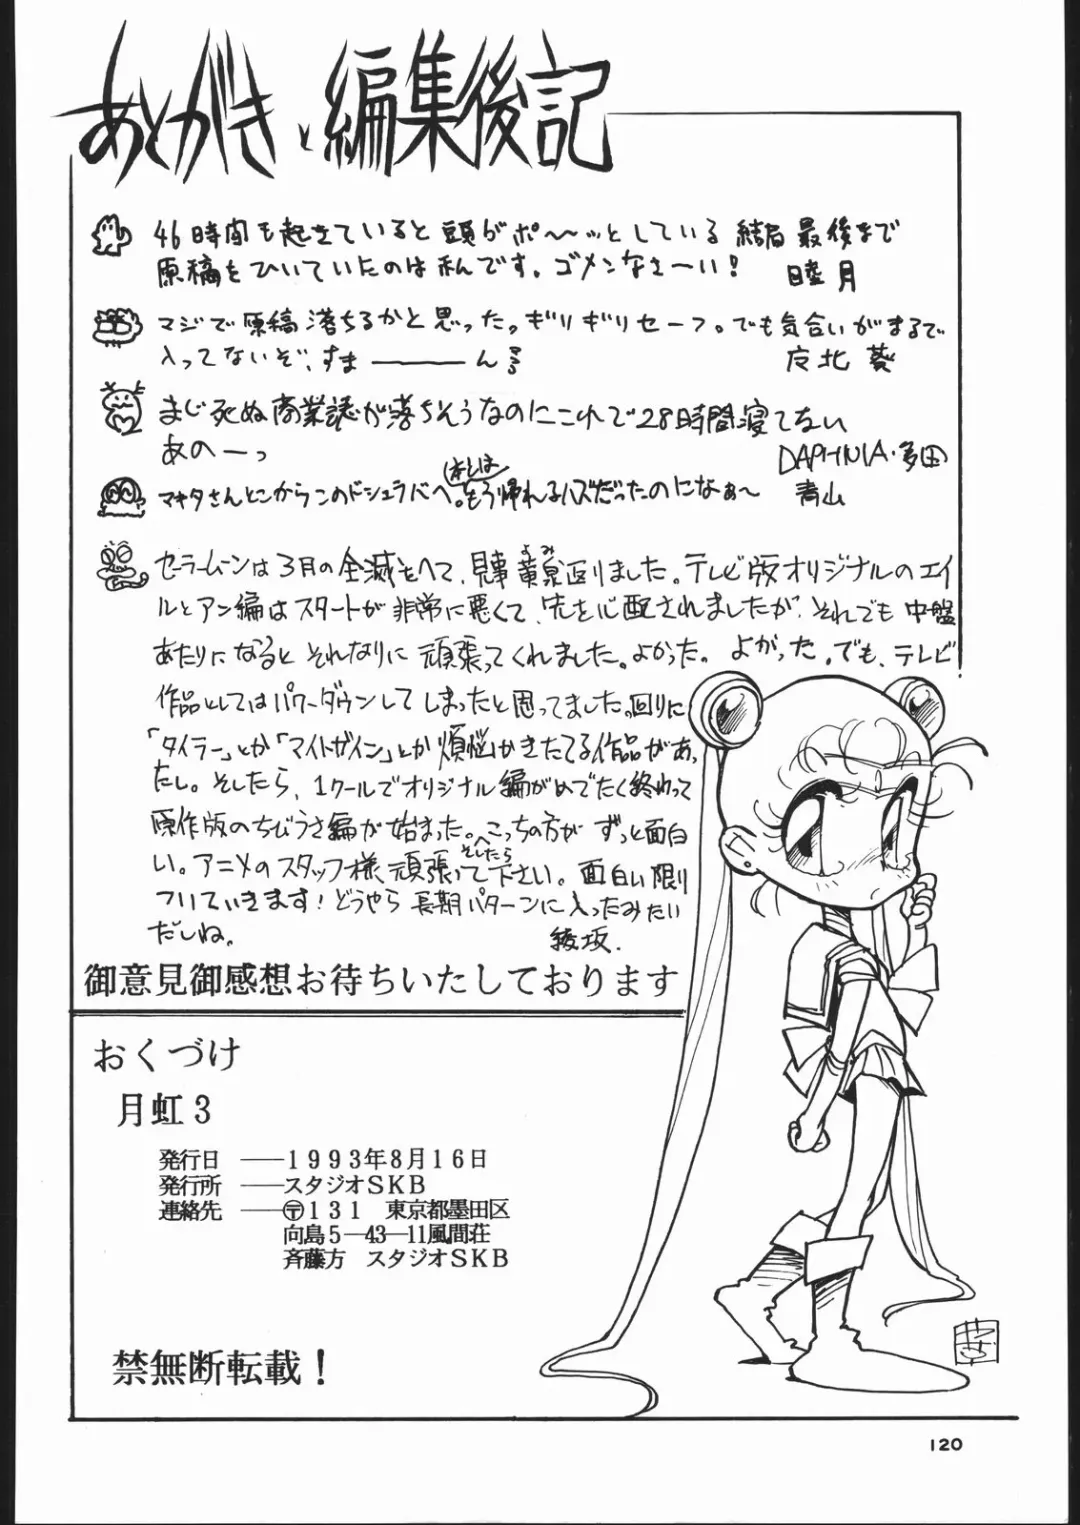 あとがきと編集後記
46時間も起きていると頭がポ〜〜ッとしている 結局 最後まで
原稿をひいていたのは私んです。ゴメンなさーい! 睦月
マジで原稿落ちるかと思ったっ。ギリギリセーフ。でも気合いがまるで
入ってないぞ、すま————ん 北 葵
まじ死ぬ 商業誌が落ちそうなのにこれで28時間寝てない
あのーっ DAPHNIA・多田
マキタさんとこからこのドシュラバへ。(本とは)もう帰れるハズだったのになぁ〜 青山
セーラームーンは3月の全滅をへて、見事黄泉(よみ)返りました。テレビ版オリジナルのエイ
ルとアン編はスタートが非常に悪くて、先を心配されましたが、それでも中盤
あたりになると それなりに 頑張ってくれました。よかった。よがった。でも、テレビ
作品としてはパワーダウンしてしまったと思ってました。回りに
「タイラー」とか「マイトガイン」とか煩悩かきたてる作品があっ
たし。そしたら、1クールでオリジナル編がめでたく終わって
原作版のちびうさ編が始まった。へこっちの方が ずっと面白
い。アニメのスタッフ様、頑張って下さい。そしたら面白い限り
ついていきます! どうやら 長期パターンに入ったみたい
だしね。 綾坂.
御意見御感想お待ちいたしております
おくづけ
月虹3
発行日 ——1993年8月16日
発行所 ——スタジオSKB
連絡先 ——〶131 東京都墨田区
向島5—43—11風間荘
斉藤方 スタジオSKB
禁無断転載!
120